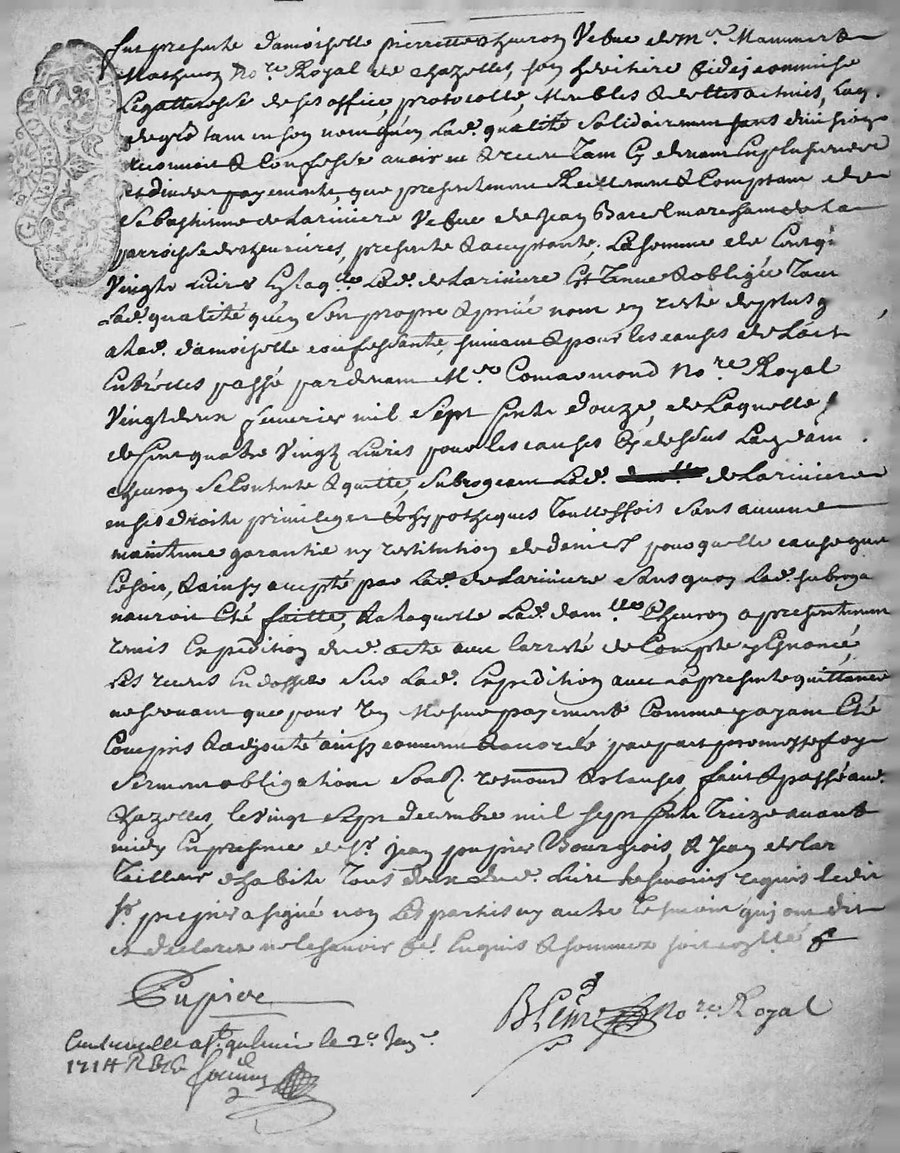 fut presente damoiselle pierrette cheuron Vefue de mr. Mammert
Matheuon Nore. Royal de chazelles, son heritiere fideicommise
Legatteresse de ses office, protocolle, Meubles & dettes actiues, Laq.
de gré tam en son nom quen Lad. qualité solidairement sans diuision
reconnoit & Confesse auoir eu & receu Tam Cy deuam En plusieurs
et diuers payements, que presentemem Reellement & Comptam de
Sebastienne de Lariuiere Vefue de Jean Barcel marcham de la
parroisse de cheurieres, presente & acceptante, La somme de Cent
Vingts Liures En laqlle Lad. de Lariuiere Est Tenue & obligée Tam
Lad. qualité quen Son propre & priué nom en reste de plus g
a Lad. damoiselle confessante, suiuam & pour les causes de L'act
Entrelles passé pardeuam Mr. Comarmond Nore Royal
Vingt deux feurier mil Sept Cents douze, de Laquelle
de Cent quatre Vingt Liures pour les causes Cy dessus Lad. dam
cheuron Se Contente & quitte, subrogeam Lad. de Lariuiere
en ses droits priuileges & hypotheques Touttesfois sans aucune
maintenue garantie ny restitution de deniers pour quelle cause que
Ce soit, & ainsy accepté par Lad. de Lariuiere sans quoy Lad. subroga
nauroit Eté faitte, & a laquelle Lad. damlle Cheuron a presentemem
remis Expedition dud. acte auec Larresté de Compte y Enoncé,
Les receus Endossés Sur Lad. Expedition auec La presente quittance
ne seruant que pour Un Mesme payement Comme y ayam Eté
Compris & adjouté ainsy conuenu & accordé par pact promesse foy
Serment obligations Soub. renonc & clauses, fait & passé aud.
Chazelles, le vingt Sept decembre mil sept Cents Treize auant
midy En presence de Sr. Jean pupier Bourgeois, & Jean
Tailleur d'habits Tous deux dud. Lieu tesmoins requis Ledit
Sr. pupier a signé non Les parties ny autre Tesmoin qui ont dit
et declaré ne le sauoir Enquis & sommez soit
Pupier
Nore. Royal
Controollé a St. galmier le 2e. Janr.
1714